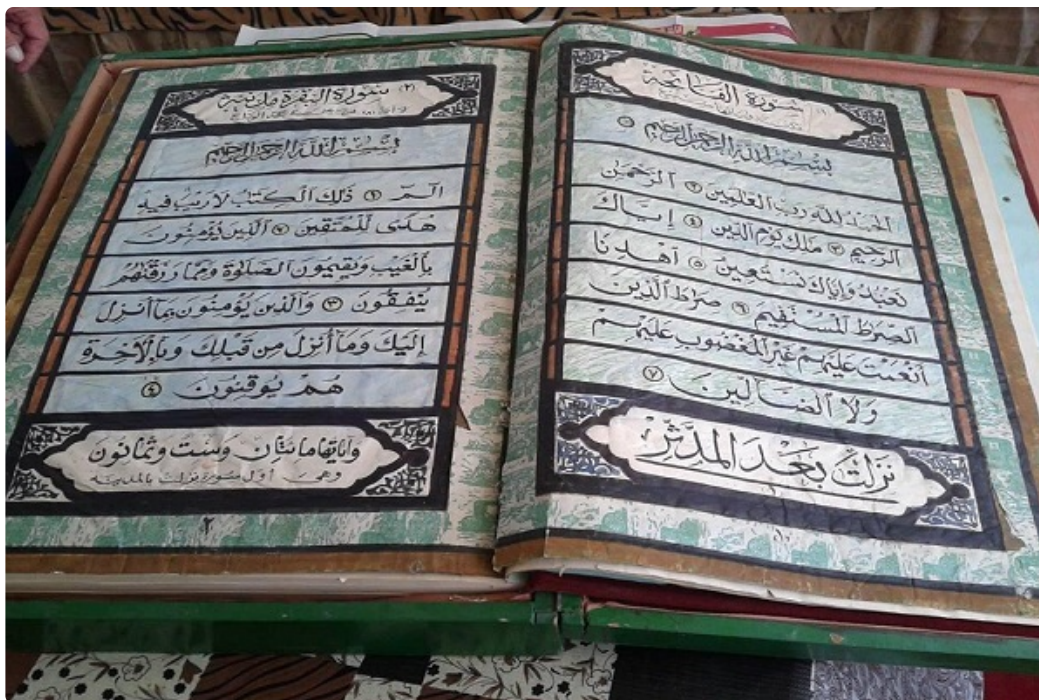 (١) سورة الفاتحة
بِسْمِ اللَّهِ الرَّحْمَنِ الرَّحِيمِ ۝١
الْحَمْدُ لِلَّهِ رَبِّ الْعَلَمِينَ ۝٢ الرَّحْمَنِ
الرَّحِيمِ ۝٣ مَلِكِ يَوْمِ الدِّينِ ۝٤ إِيَّاكَ
نَعْبُدُ وَإِيَّاكَ نَسْتَعِينُ ۝٥ اهْدِنَا
الصِّرَطَ الْمُسْتَقِيمَ ۝٦ صِرَطَ الَّذِينَ
أَنْعَمْتَ عَلَيْهِمْ غَيْرِ الْمَغْضُوبِ عَلَيْهِمْ
وَلَا الضَّالِّينَ ۝٧
نَزَلَتْ بَعْدَ الْمُدَّثِّرِ
١
(٢) سورة البقرة مدنية
بِسْمِ اللَّهِ الرَّحْمَنِ الرَّحِيمِ
الٓمٓ ۝١ ذَلِكَ الْكِتَبُ لَا رَيْبَ فِيهِ
هُدًى لِلْمُتَّقِينَ ۝٢ الَّذِينَ يُؤْمِنُونَ
بِالْغَيْبِ وَيُقِيمُونَ الصَّلَوةَ وَمِمَّا رَزَقْنَهُمْ
يُنْفِقُونَ ۝٣ وَالَّذِينَ يُؤْمِنُونَ بِمَا أُنْزِلَ
إِلَيْكَ وَمَا أُنْزِلَ مِنْ قَبْلِكَ وَبِالْآخِرَةِ
هُمْ يُوقِنُونَ ۝٤
وآياتها مائتان وست وثمانون
وهى أول سورة نزلت بالمدينة
٢